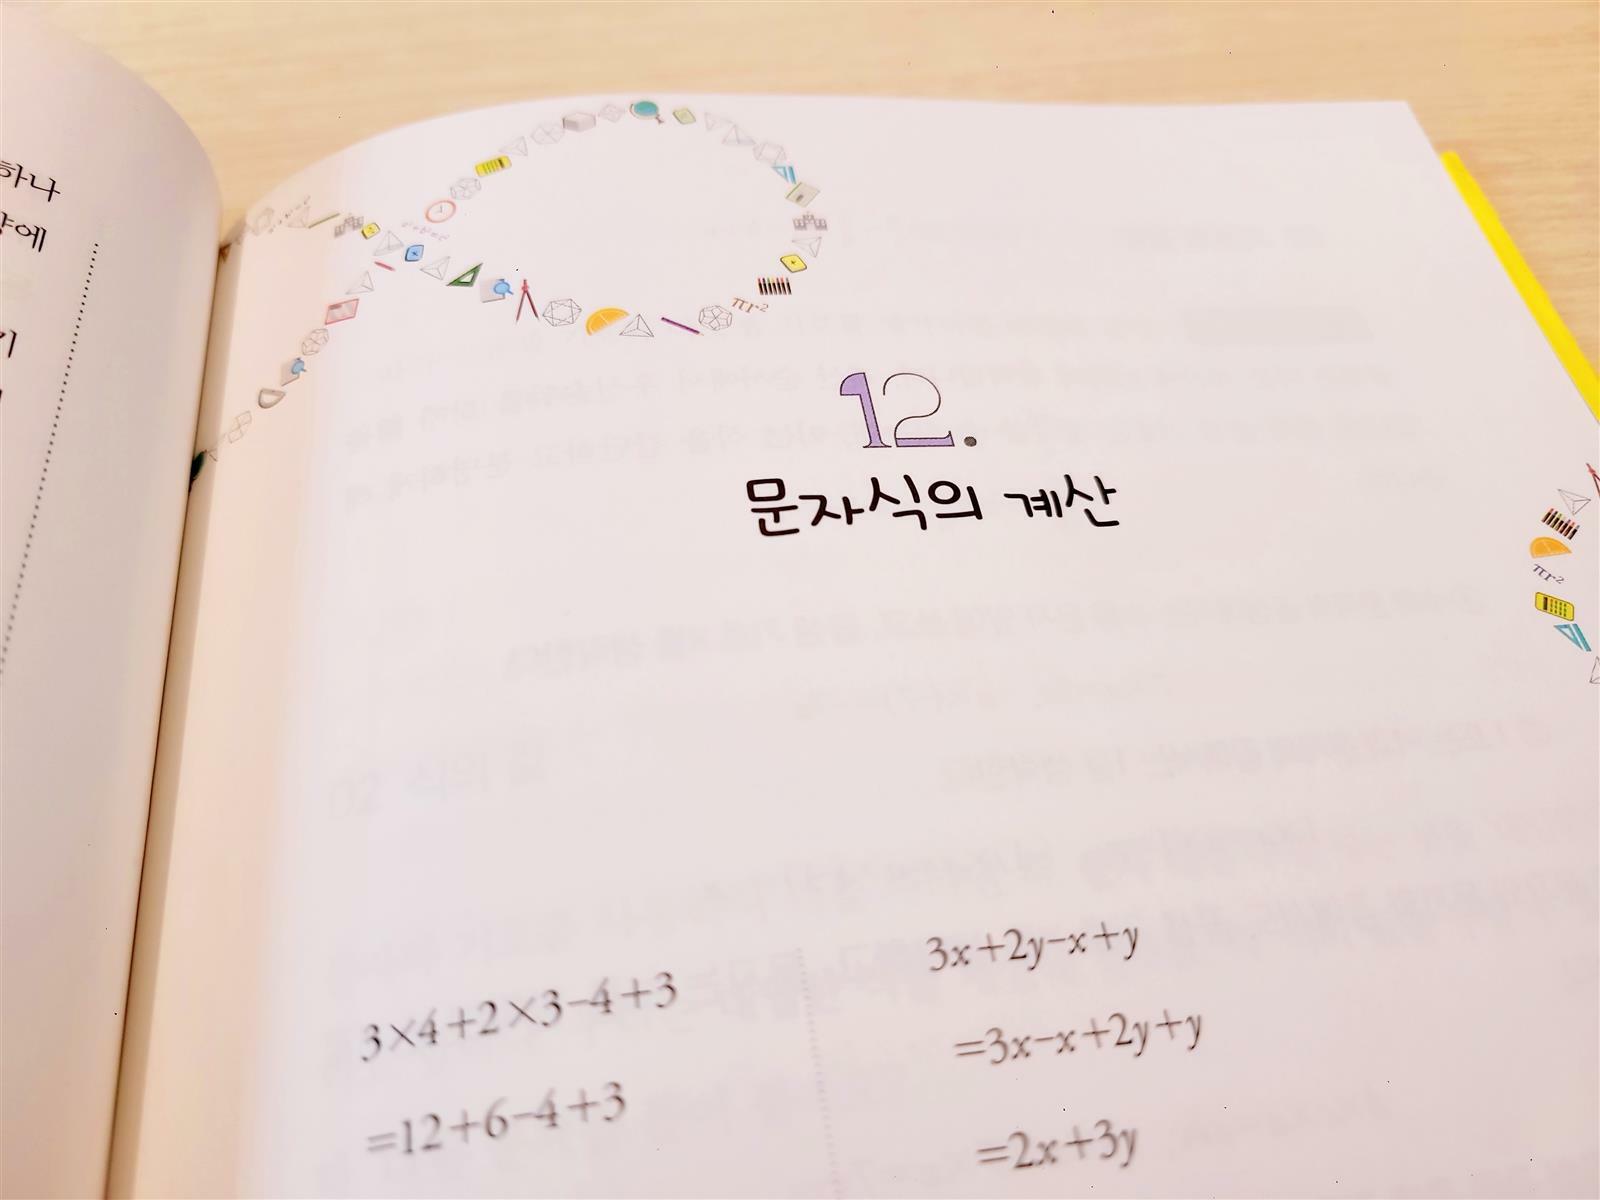 하나
에
기
πr²
12.
문자식의 계산
πr²
3×4+2×3-4+3
=12+6-4+3
3x+2y-x+y
=3x-x+2y+y
=2x+3y